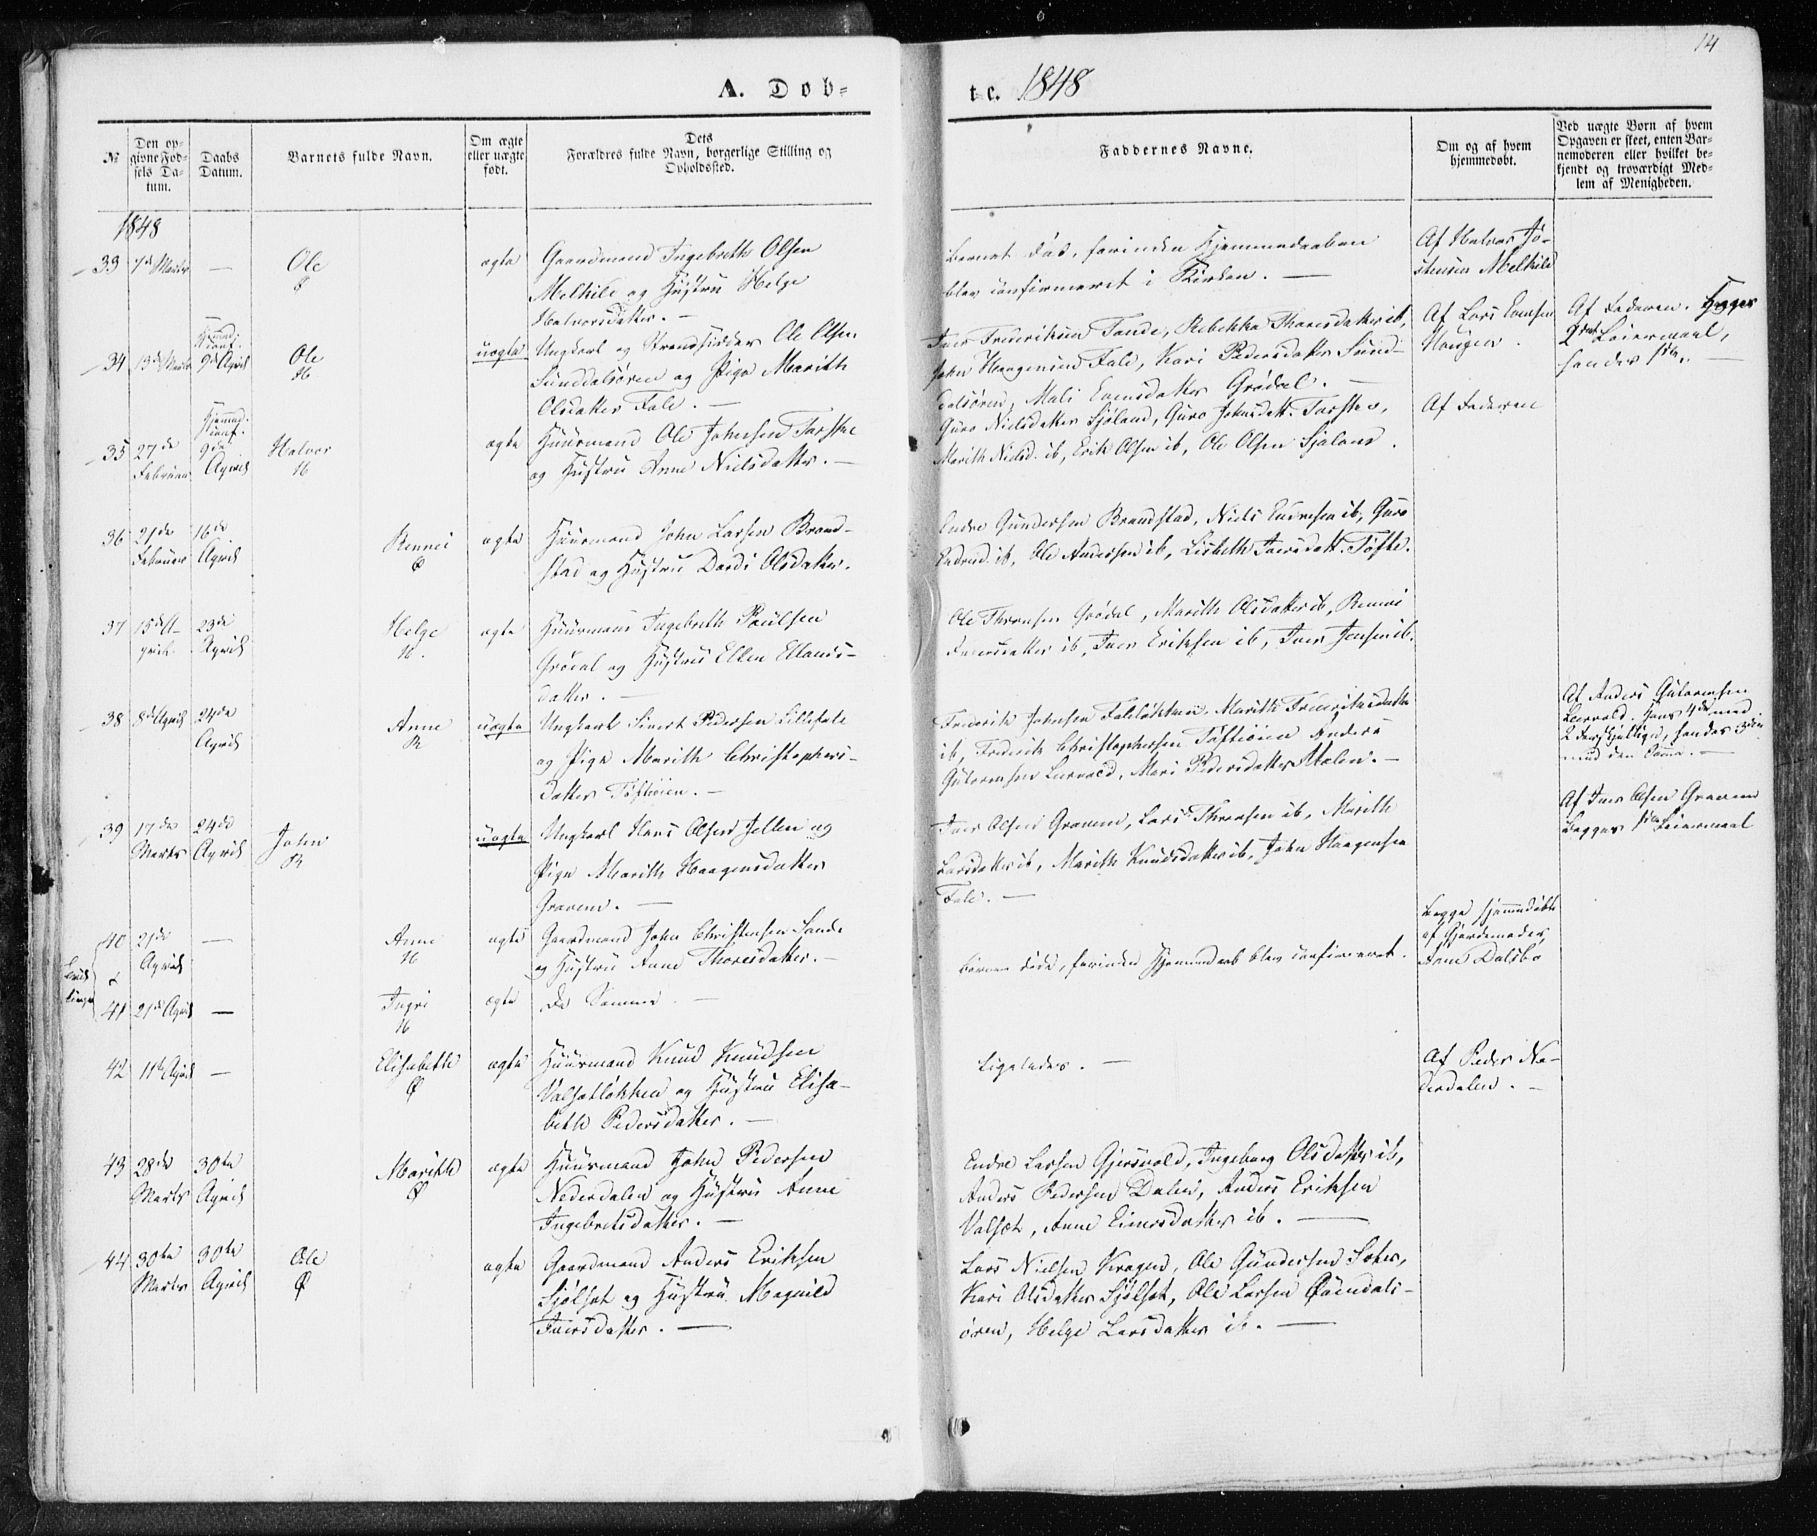 14
A. Døb-
te. 1848
№
Den op-
givne Fød-
sels Da-
tum.
Daabs
Datum.
Barnets fulde Navn.
Om ægte
eller uægte
født.
Dets
Forældres fulde Navn, borgerlige Stilling og
Opholdssted.
Faddernes Navne.
Om og af hvem
hjemmedøbt.
Ved uægte Børn af hvem
Opgaven er skeet, enten Bar-
nemoderen eller hvilket be-
kjendt og troværdigt Med-
lem af Menigheden.
1848
33 7de Marts — Ole ægte Gaardmand Ingebrigt Olsen
Melkild og Hustru Helge
Halvorsdatter. —
Barnet død, forinden Hjemmedaaben
blev confirmeret i Kirken. —
Af Halvor Jo-
stensen Melkild
34 13de Marts Hjemmed.
conf.
9de April Ole uægte Ungkarl og Strandsidder Ole Olsen
Sunddalsøren og Pige Marith
Olsdatter Fale. —
Iver Frederiksen Tande, Rebekka Thoresdatter ib,
John Haagensen Fale, Kari Pedersdatter Sund-
dalsøren, Mali Evensdatter Grødal. —
Af Lars Evensen
Haugen.
Af Faderen.
Leiermaal,
hendes 1ste. —
35 27de
Februar Hjemmed.
conf.
9de
April Halvor ægte Huusmand Ole Johnsen Torske
og Hustru Anne Nielsdatter. —
Guro Nielsdatter Sjøland, Guro Johnsdatt. Torske,
Marith Nielsd. ib, Erik Olsen ib, Ole Olsen Sjøland.
Af Faderen
36 21de
Februar 16de
April Rennei ægte Huusmand John Larsen Brand-
stad og Hustru Dordi Olsdatter.
Endre Gundersen Brandstad, Niels Endresen ib, Guro
Endresd. ib, Ole Andersen ib, Lisbeth Iversdatt. Tofte.
37 15de A-
pril 23de
April Helge ægte Huusmand Ingebrigt Poulsen
Grødal og Hustru Ellen Ellands-
datter. —
Ole Thoresen Grødal, Marith Olsdatter ib, Rennei
Iversdatter ib, Iver Eriksen ib, Iver Jensen ib.
38 8de April 24de
April Anne uægte Ungkarl Sivert Pedersen Lillefale
og Pige Marith Christophers-
datter Toftøien. —
Frederik Johnsen Faleløkken, Marith Frederiksdatter
ib, Frederik Christophersen Toftøien, Anders
Guttormsen Leervold, Mari Pedersdatter Stolen. —
Af Anders Guttormsen
Leervold. Hans 4de med
2 forskjellige, hendes 3die
med den Samme. —
39 17de
Marts 24de
April John uægte Ungkarl Hans Olsen Jellen og
Pige Marith Haagensdatter
Gravem. —
Iver Olsen Gravem, Lars Thoresen ib, Marith
Larsdatter ib, Marith Knudsdatter ib, John Haagensen
Fale. —
Af Iver Olsen Gravem
Begges 1ste Leiermaal
40 21de
April — Anne ægte Gaardmand John Christensen Sande
og Hustru Anne Thoresdatter. —
Børnene døde, forinden Hjemmedaab blev confirmeret.
Begge hjemmedøbte
af Gjordemoder
Anne Dalsbø
41 21de April — Ingri ægte De Samme. —
42 11te April — Elisabeth ægte Huusmand Knud Knudsen
Valsætløkken og Hustru Elisa-
beth Pedersdatter. —
Ligeledes. —
Af Peder Ne-
derdalen. —
43 28de
Marts 30te
April Marith ægte Huusmand John Pedersen
Nederdalen og Hustru Anne
Ingebrigtsdatter. —
Endre Larsen Gjersvold, Ingeborg Olsdatter ib,
Anders Pedersen Dalen, Anders Eriksen
Valsæt, Anne Einersdatter ib. —
44 30te
Marts 30te
April Ole ægte Gaardmand Anders Eriksen
Sjølset og Hustru Magnild
Iversdatter. —
Lars Nielsen Kragen, Ole Gundersen Sæter,
Kari Olsdatter Sjølset, Ole Larsen Øxendals-
øren, Helge Larsdatter ib. —